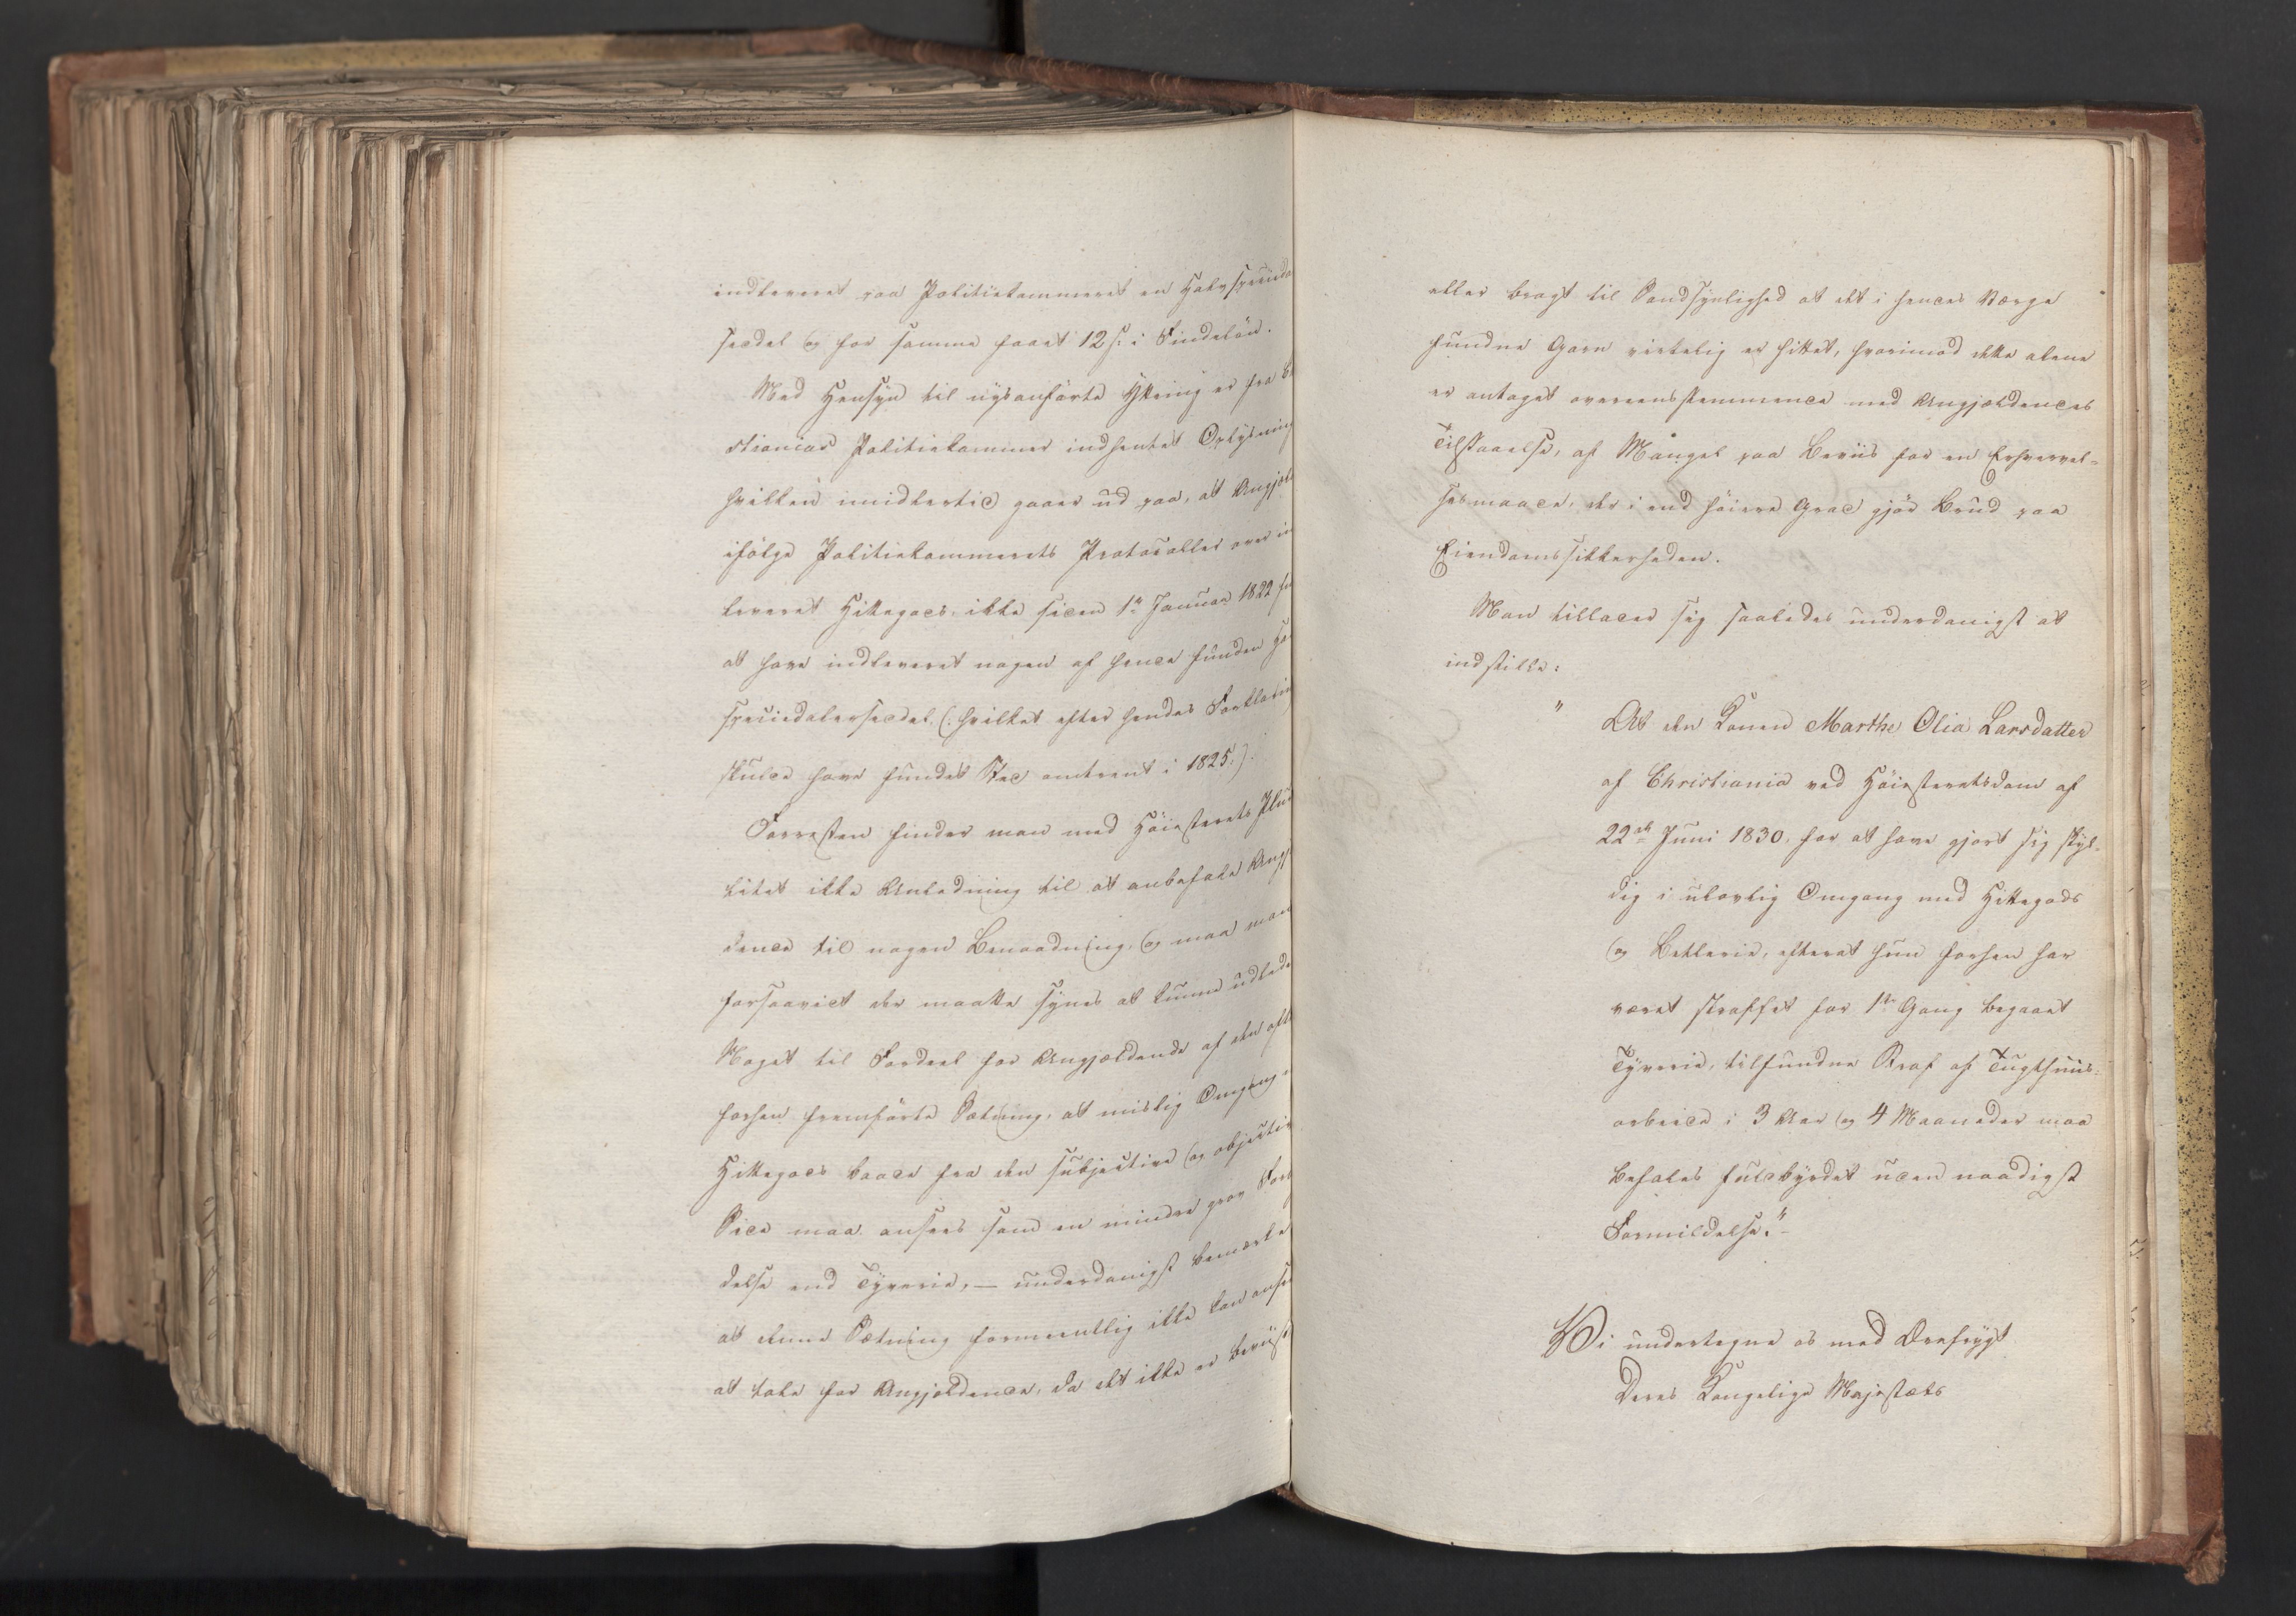 indleveret paa Politiekammeret en Halvspecieda
seddel og for samme faaet 12 s. i Findelön.
Med Hensyn til nysanförte Yttring er fra
stianias Politiekammer indhentet Oplysning
hvilken imidlertid gaaer ud paa, at Angjæl
ifölge Politiekammerets Protocoller over in
leveret Hittegods, ikke siden 1ste Januar 1822
at have indleveret nogen af hende funden Ha
speciedalerseddel (: hvilket efter hendes Forklarin
skulde have fundet Sted omtrent i 1825:).
Forresten finder man med Höiesterets Plu
litet ikke Anledning til at anbefale Angj
dende til nogen Benaadning, og maa man
forsaavidt der maatte synes at kunne udlede
Noget til Fordeel for Angjældende af den oft
forhen fremförte Sætning, at mislig Omgang
Hittegods baade fra den subjective og objectiv
Side maa ansees som en mindre grov Forb
delse end Tyverie, — underdanigst bemærke
at denne Sætning formeentlig ikke kan anse
at tale for Angjældende, da det ikke er beviist
eller bragt til Sandsynlighed at det i hendes Værge
fundne Garn virkelig er hittet, hvorimod dette alene
er antaget overeensstemmende med Angjældendes
Tilstaaelse, af Mangel paa Beviis for en Erhvervel-
sesmaade, der i end höiere Grad gjör Brud paa
Eiendomssikkerheden.
Man tillader sig saaledes underdanigst at
indstille:
" At den Konen Marthe Olia Larsdatter
af Christiania ved Höiesteretsdom af
22de Juni 1830. for at have gjort sig skyl-
dig i ulovlig Omgang med Hittegods
og Betlerie, efterat hun forhen har
været straffet for 1ste Gang begaaet
Tyverie, tilfundne Straf af Tugthuus-
arbeide i 3 Aar og 4 Maaneder maa
befales fuldbyrdet uden naadigst
Formildelse."
Vi undertegne os med Ærefrygt
Deres Kongelige Majestæts